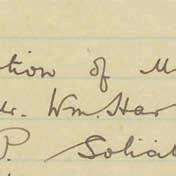 tion of M
r. Wm. Har
P. Solicit